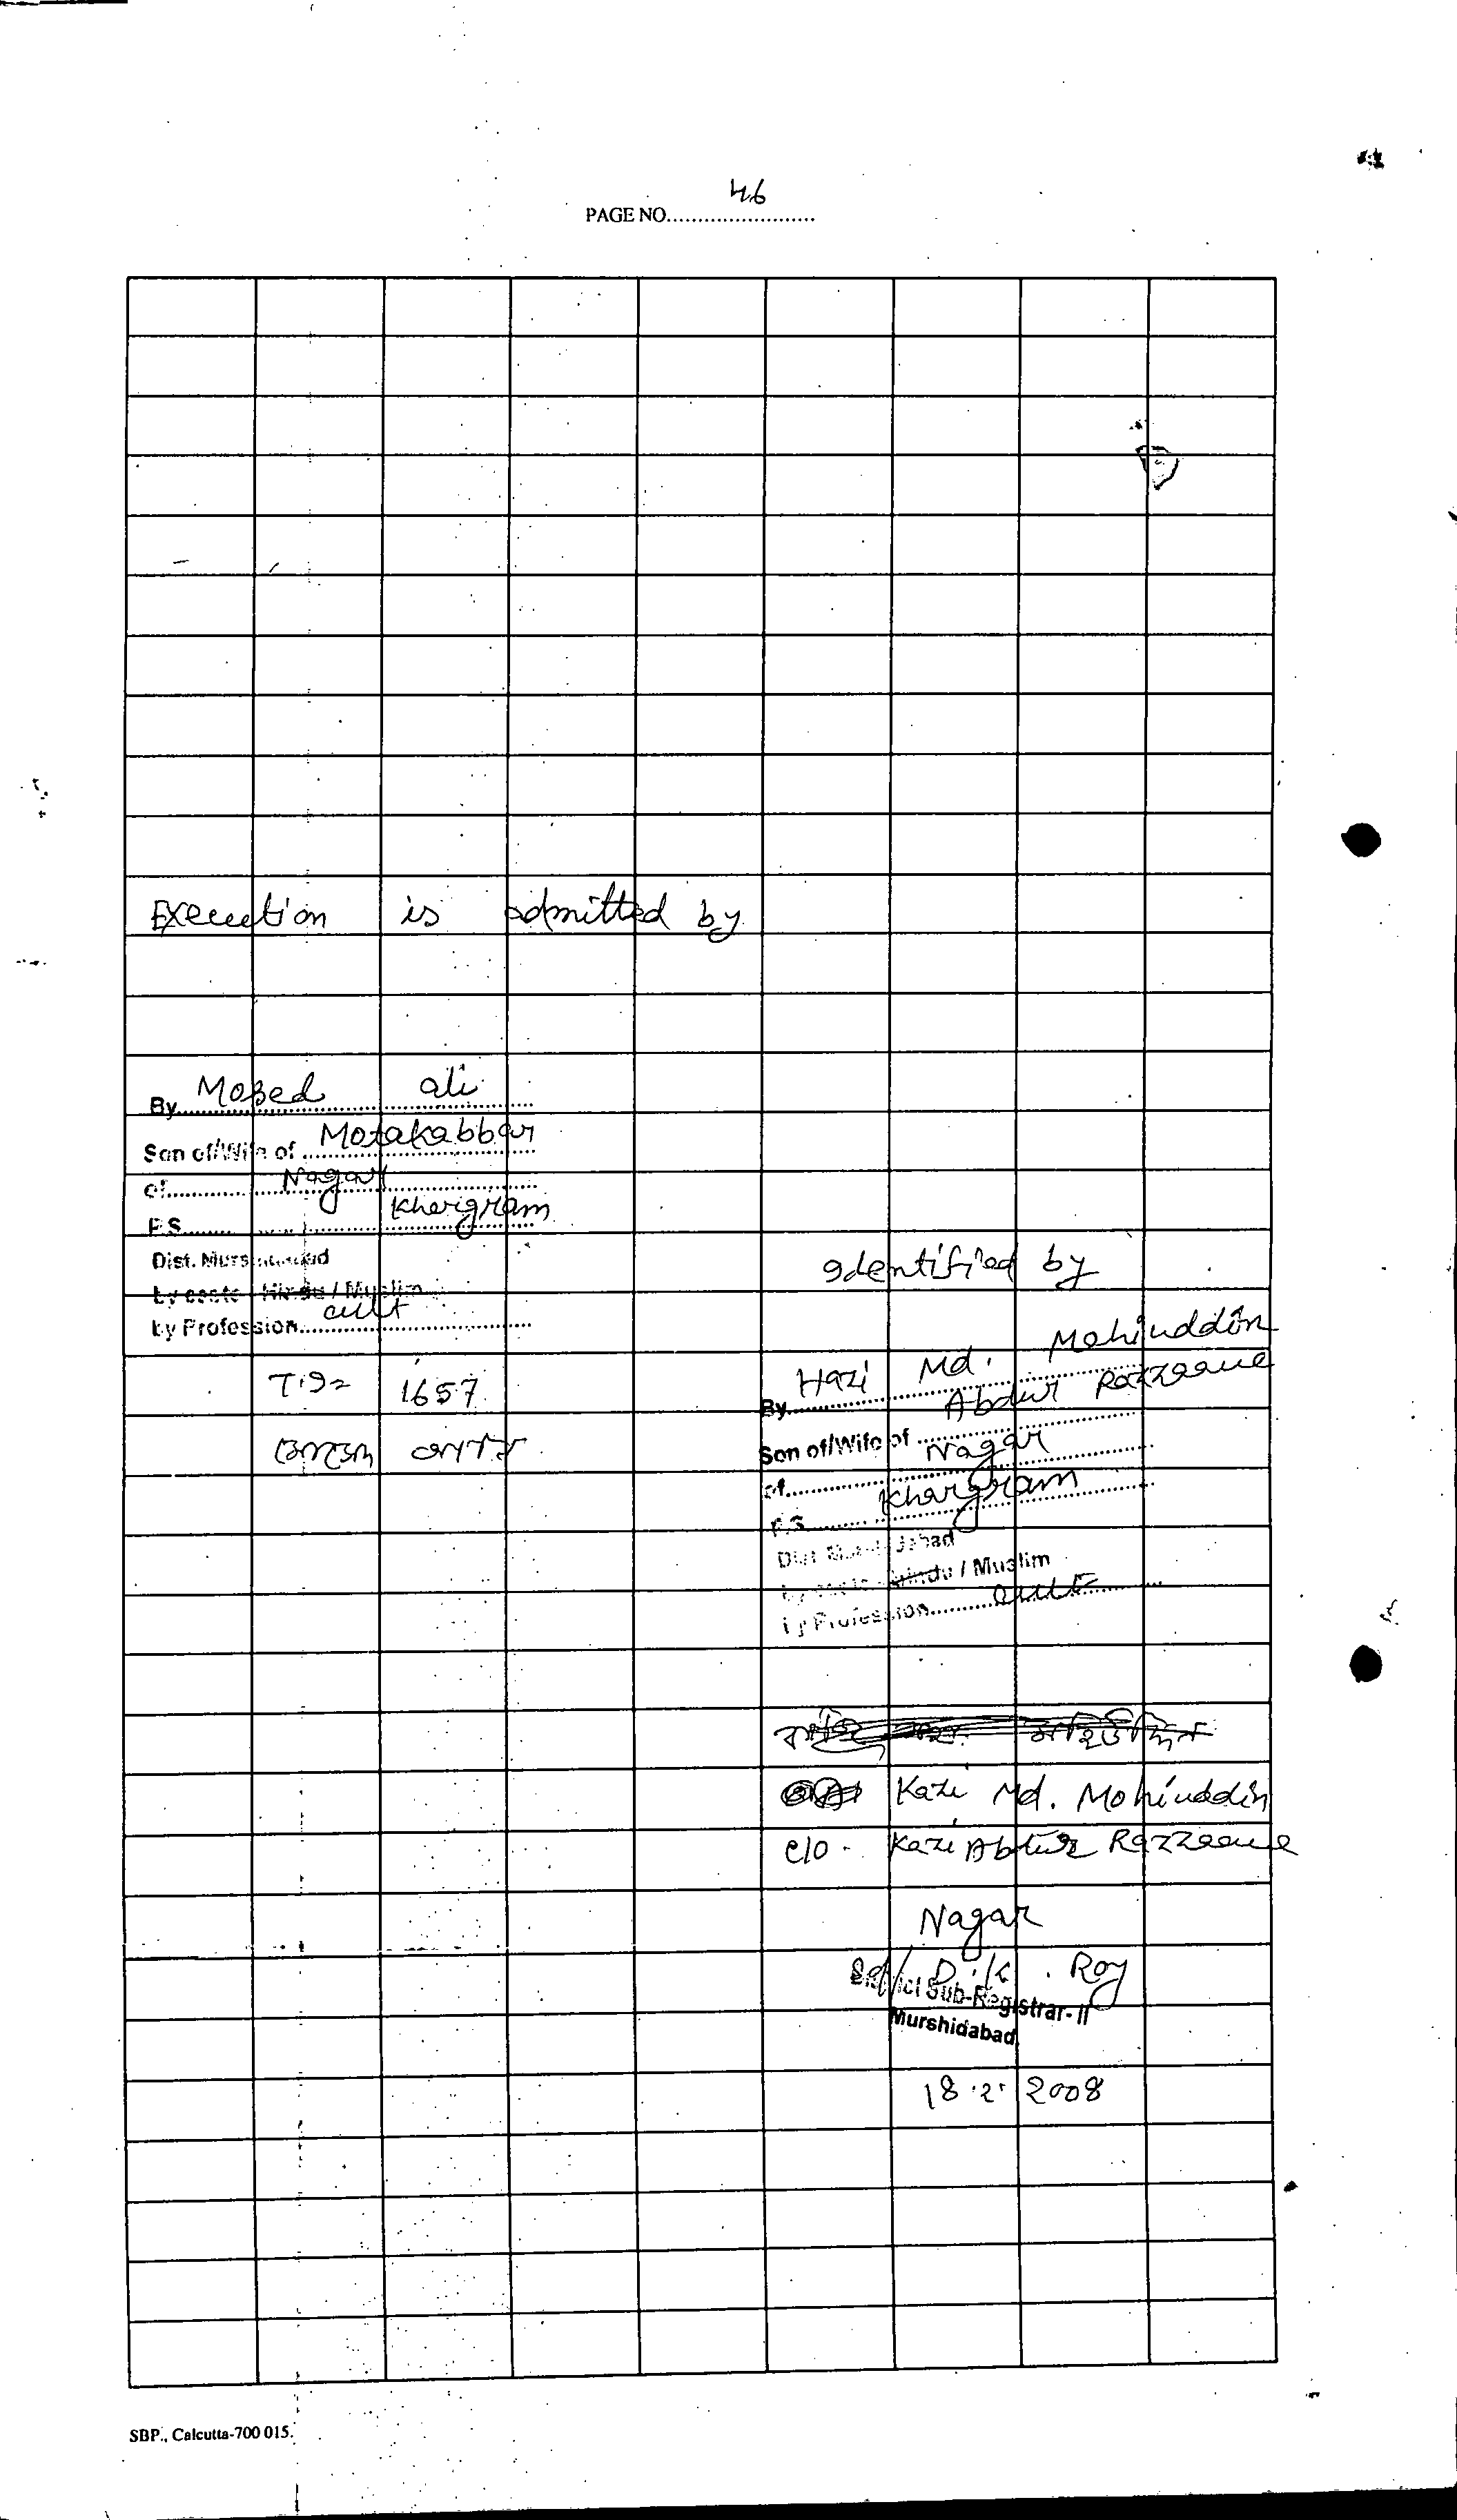 46
PAGE NO........................
Execution is admitted by
By Mosed ali
Son of/Wife of Motakabbar
of Nagar
P.S. Khargram
Dist. Murshidabad
by caste Hindu / Muslim
by Profession cult
1657
Identified by
By Hazi Md. Mohiuddin
Son of/Wife of Abdur Razzaque
of Nagar
P.S. Khargram
Dist. Murshidabad
by caste Hindu / Muslim
by Profession cult
Kazi Md. Mohiuddin
C/O - Kazi Abdur Razzaque
Nagar
Sd/ D.K. Roy
District Sub-Registrar-II
Murshidabad
18.2.2008
SBP., Calcutta-700 015.